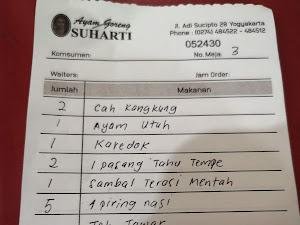 Ayam Goreng
SUHARTI
Jl. Adi Sucipto 28 Yogyakarta
Phone : (0274) 484522 - 484512
052430
Konsumen: No. Meja: 3
Waiters: Jam Order:
Jumlah Makanan
2 Cah Kangkung
1 Ayam Utuh
1 Karedok
2 1 pasang Tahu Tempe
1 Sambal Terasi Mentah
5 1 piring nasi
Teh Tawar